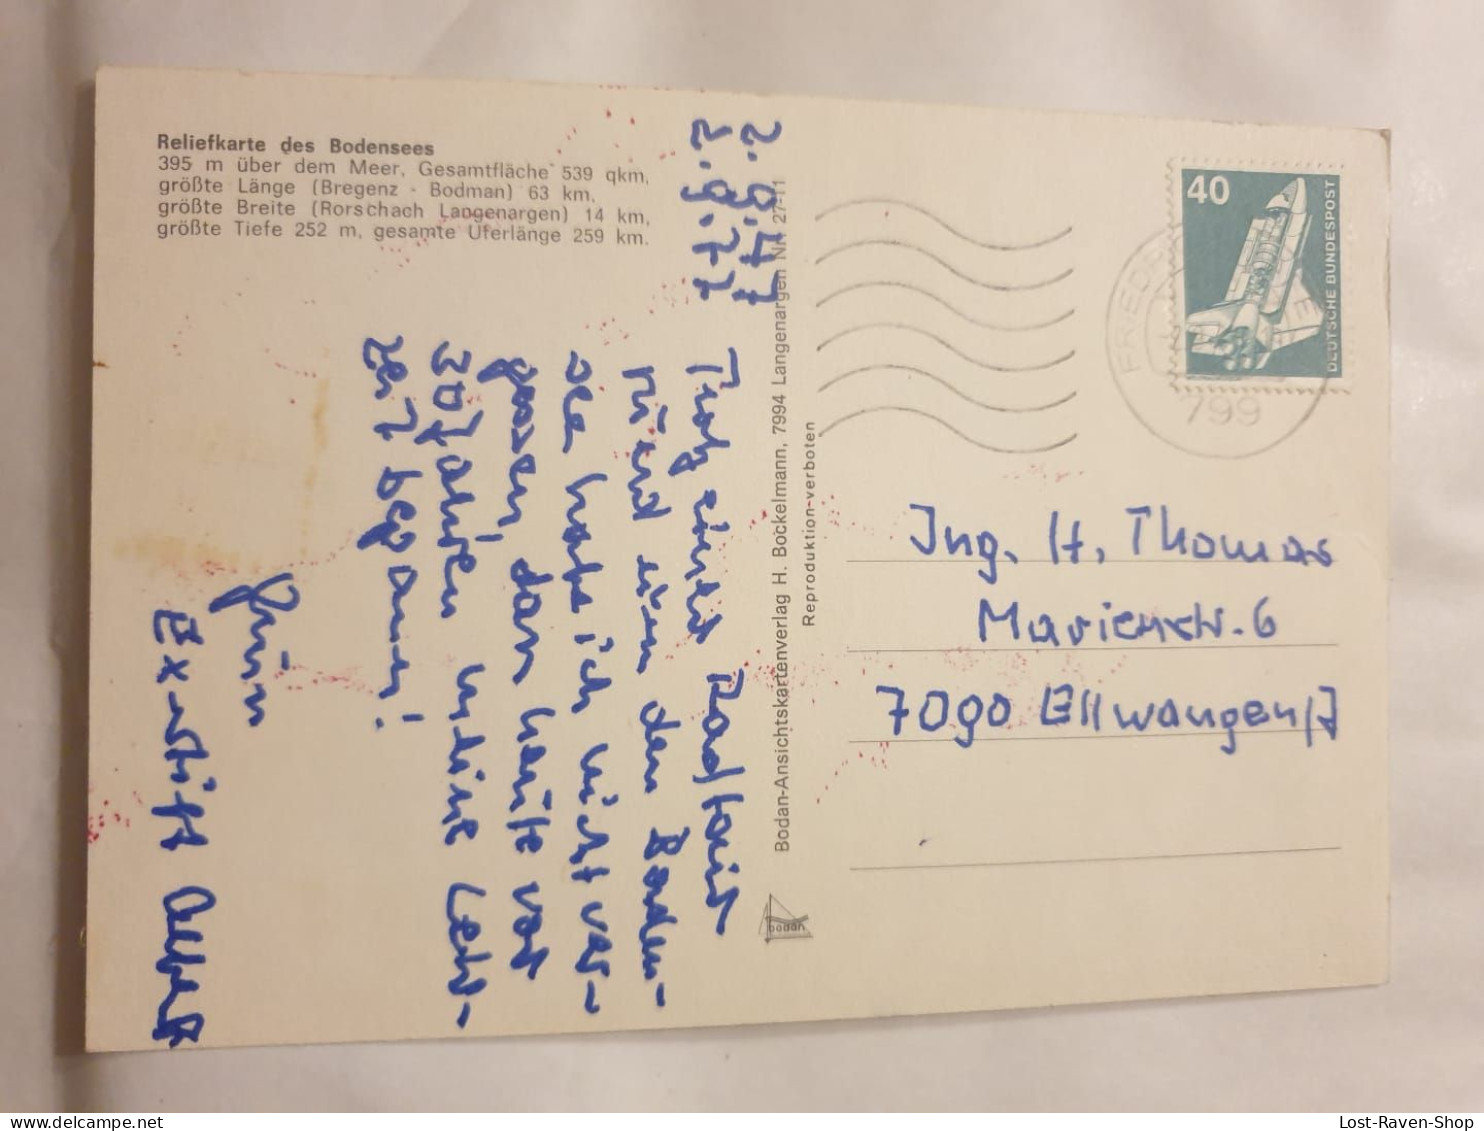 Reliefkarte des Bodensees
395 m über dem Meer, Gesamtfläche 539 qkm,
größte Länge (Bregenz - Bodman) 63 km,
größte Breite (Rorschach Langenargen) 14 km,
größte Tiefe 252 m, gesamte Uferlänge 259 km.
2.9.47
2.9.77
Trotz einer Radtour
rund um den Boden-
see habe ich nicht ver-
gessen, dass heute vor
30 Jahren meine Lehr-
zeit begann!
Ihr
Ex-Stift Albert
Bodan-Ansichtskartenverlag H. Bockelmann, 7994 Langenargen Nr. 27-11
Reproduktion verboten
bodan
40
DEUTSCHE BUNDESPOST
799
Ing. H. Thomas
Marienstr. 6
7090 Ellwangen/J
Lost-Raven-Shop